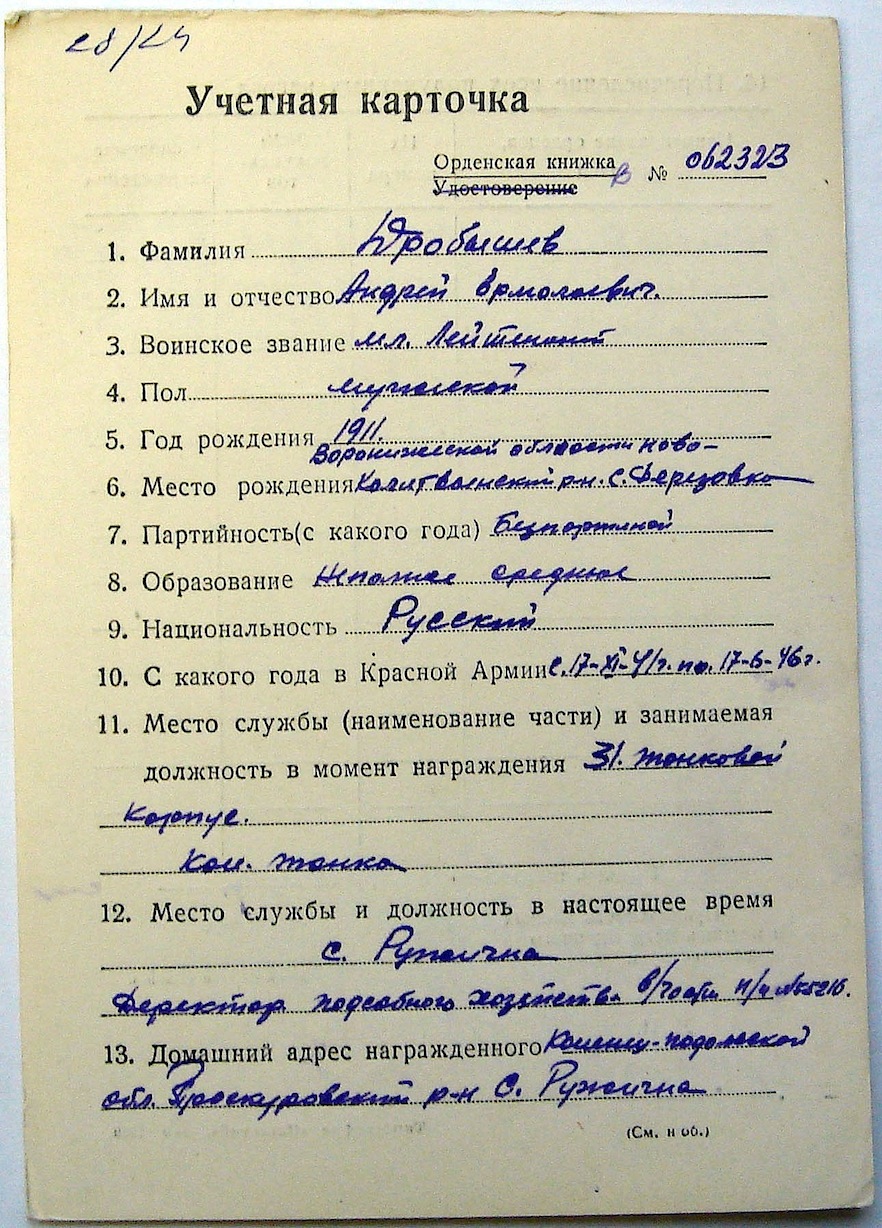 28/24
Учетная карточка
Орденская книжка
Удостоверение В № 062323
1. Фамилия Дробышев
2. Имя и отчество Андрей Ермолаевич.
3. Воинское звание мл. Лейтенант
4. Пол мужской
5. Год рождения 1911.
Воронижской области Ново-
6. Место рождения Калитвянский рн. с. Березовка
7. Партийность (с какого года) Безпартиной
8. Образование Неполное среднее
9. Национальность Русский
10. С какого года в Красной Армии С. 17-XI-41г. по. 17-6-46г.
11. Место службы (наименование части) и занимаемая
должность в момент награждения 31. танковой
Корпус.
Ком. танка
12. Место службы и должность в настоящее время
с. Ружична
Деректор подсобного хозяйств. в/части п/п №55216.
13. Домашний адрес награжденного Каменец-подольской
обл. Проскуровский р-н С. Ружична
(См. н об.)